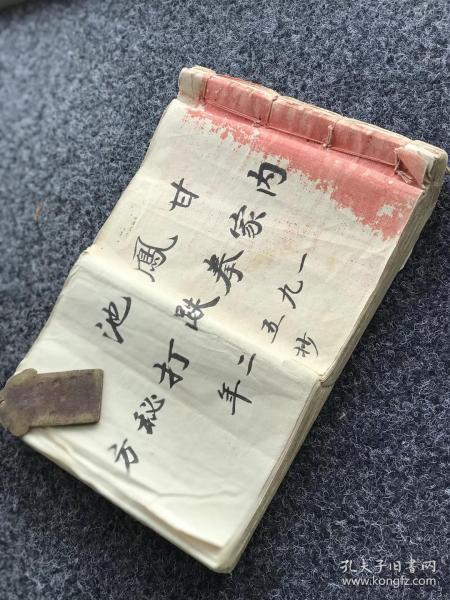 甘鳳池
内家拳跌打秘方
一九五二年
抄
孔夫子旧书网
www.kongfz.com